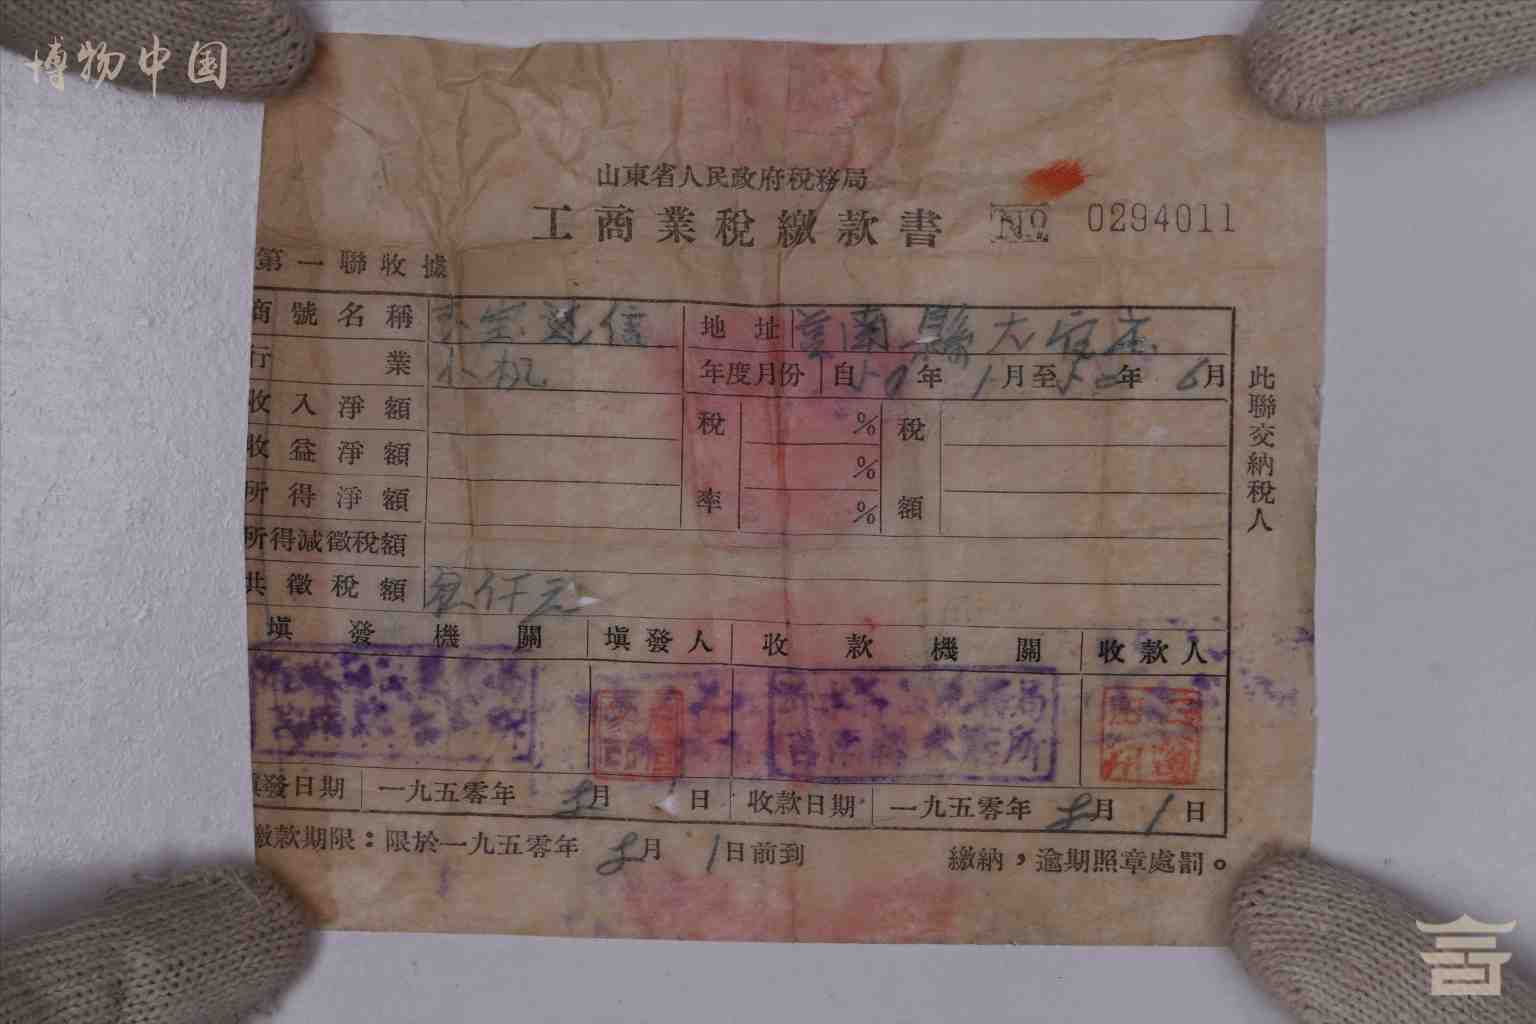 博物中国
山東省人民政府税務局
工商業稅繳款書 No 0294011
第一聯收據
商號名稱 信 地址 莒南縣大店
行業 木机 年度月份 自50年1月至50年6月
收入淨額 稅率 % 稅額
收益淨額 %
所得淨額 %
所得減徵稅額
共徵稅額 仟元
填發機關 填發人 收款機關 收款人
填發日期 一九五零年8月1日 收款日期 一九五零年8月1日
繳款期限：限於一九五零年8月1日前到 繳納，逾期照章處罰。
此聯交納稅人